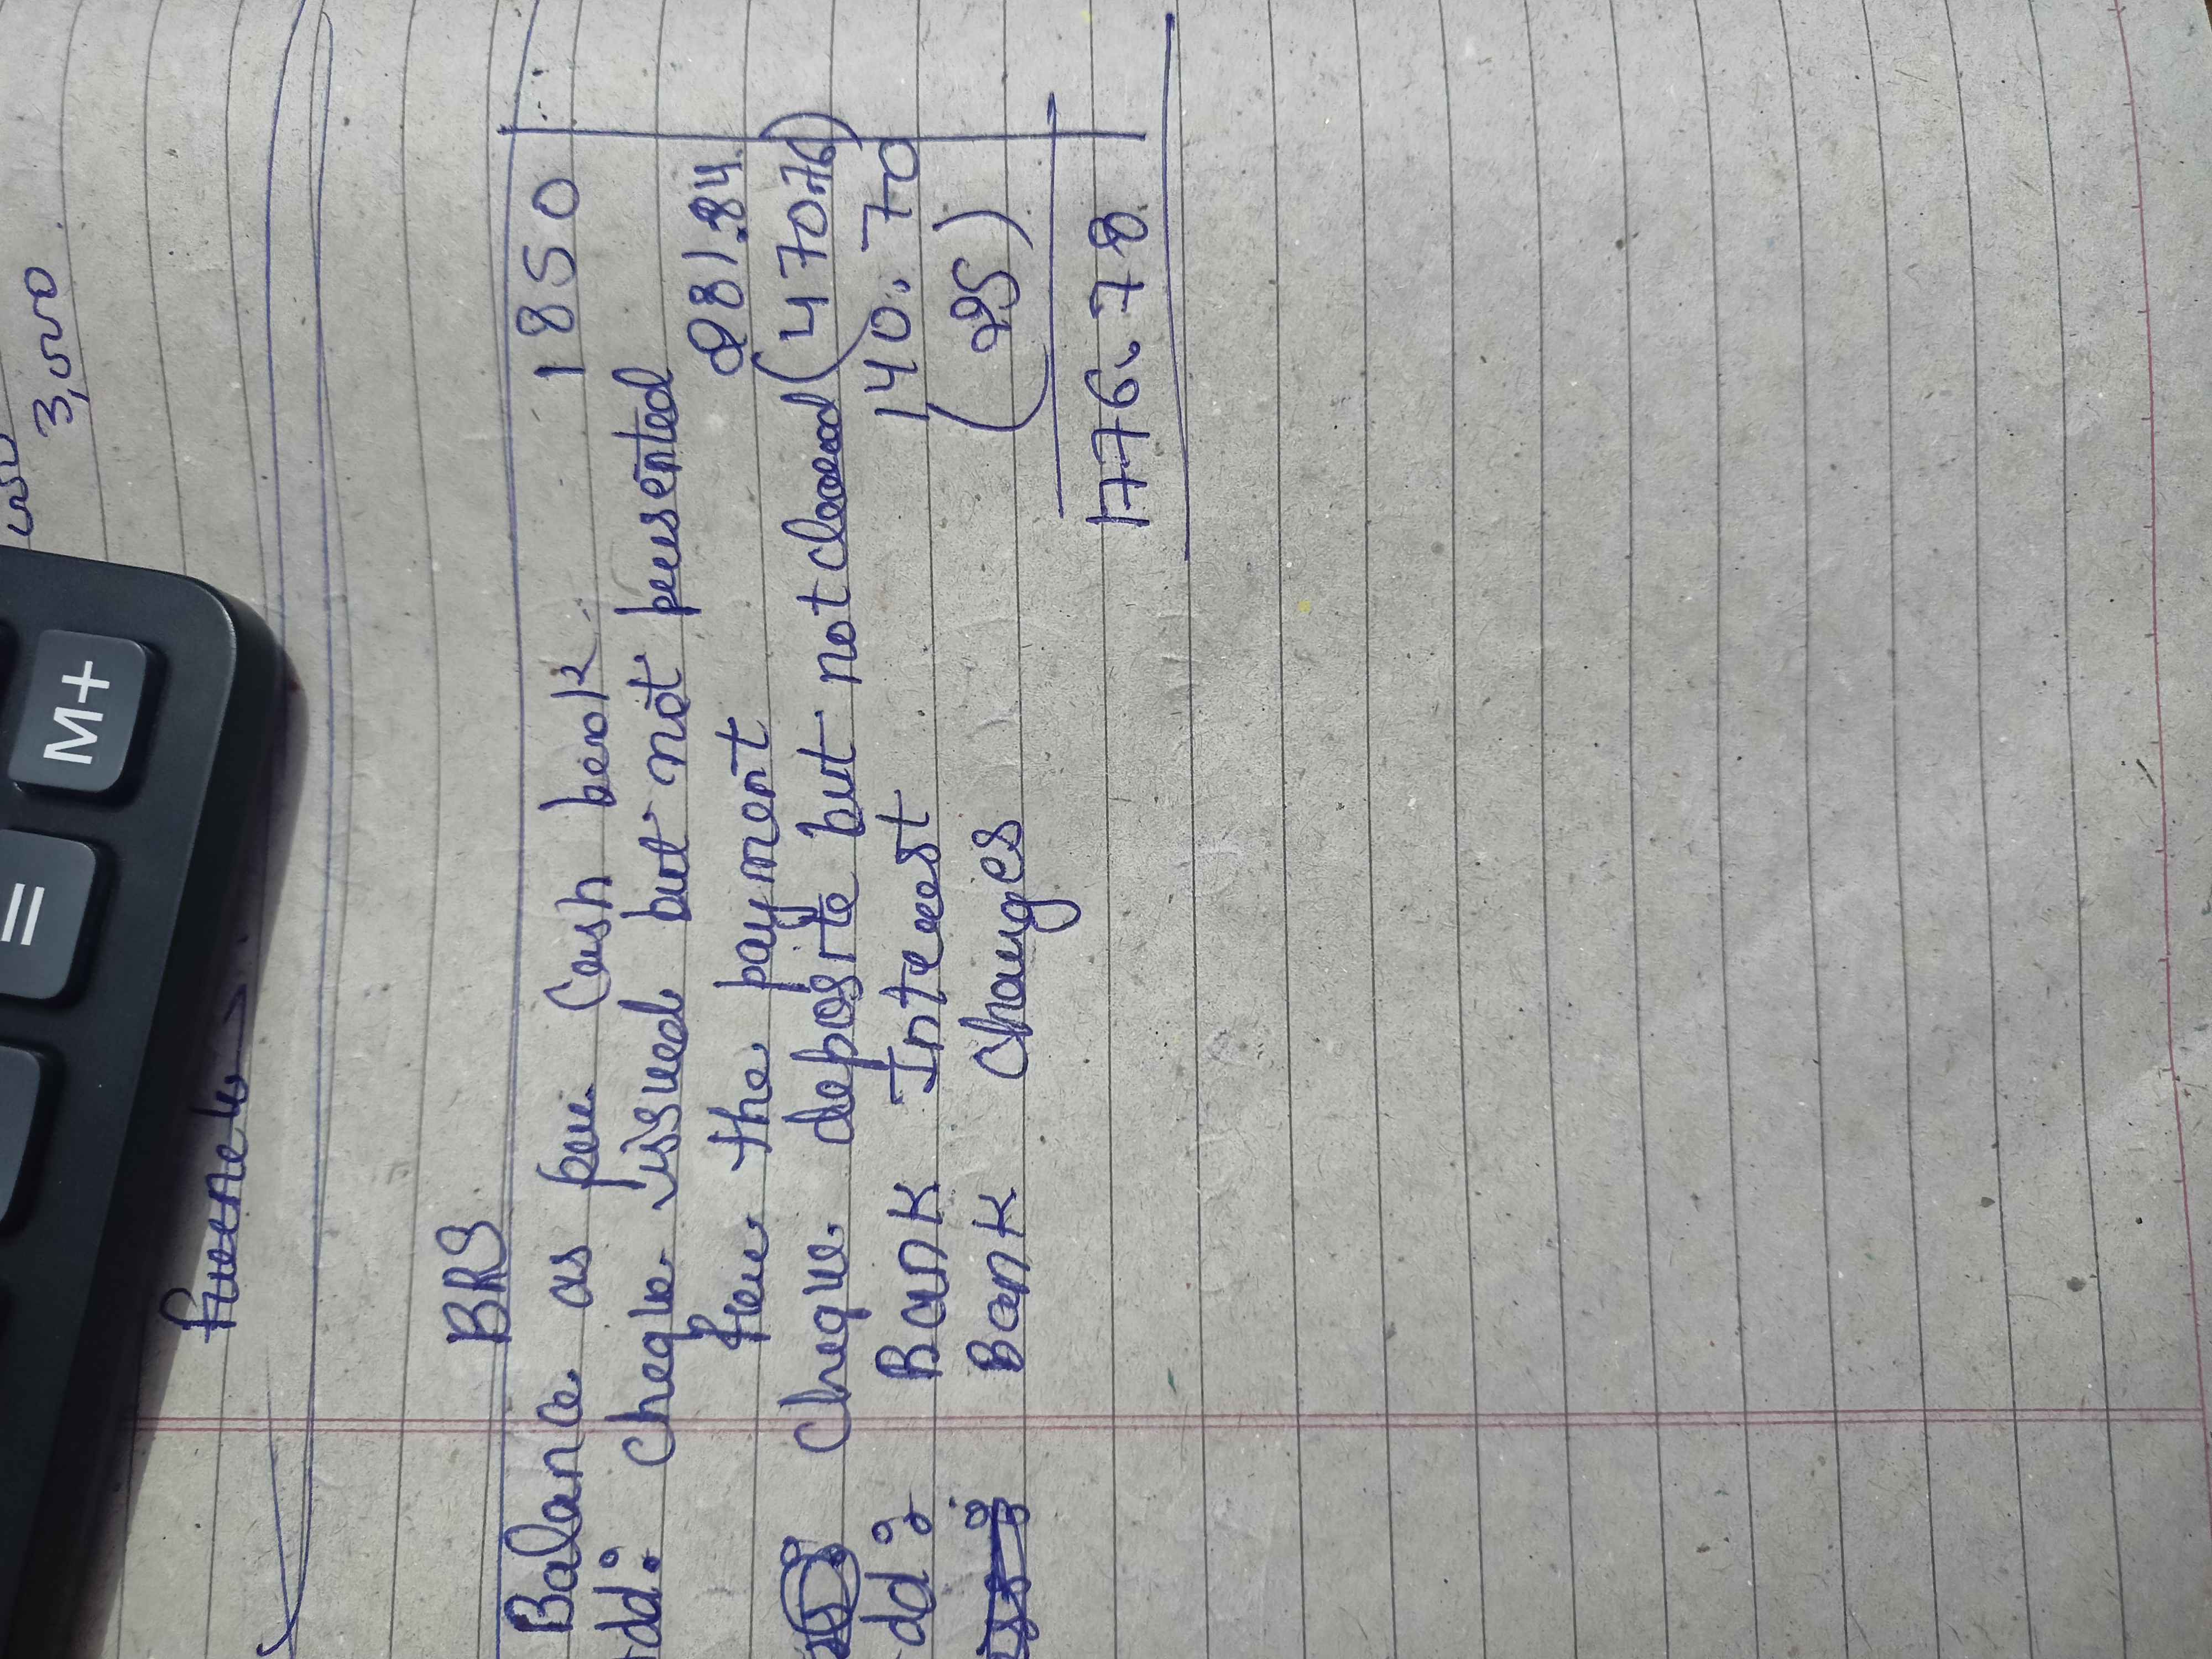 3,000
M+
=
BRS
Balance as per Cash book 1850
dd: Cheque issued but not presented
for the payment 281.84
Cheque deposite but not cleared (470.76)
dd: Bank Interest 140.70
Bank Charges (25)
1776.78